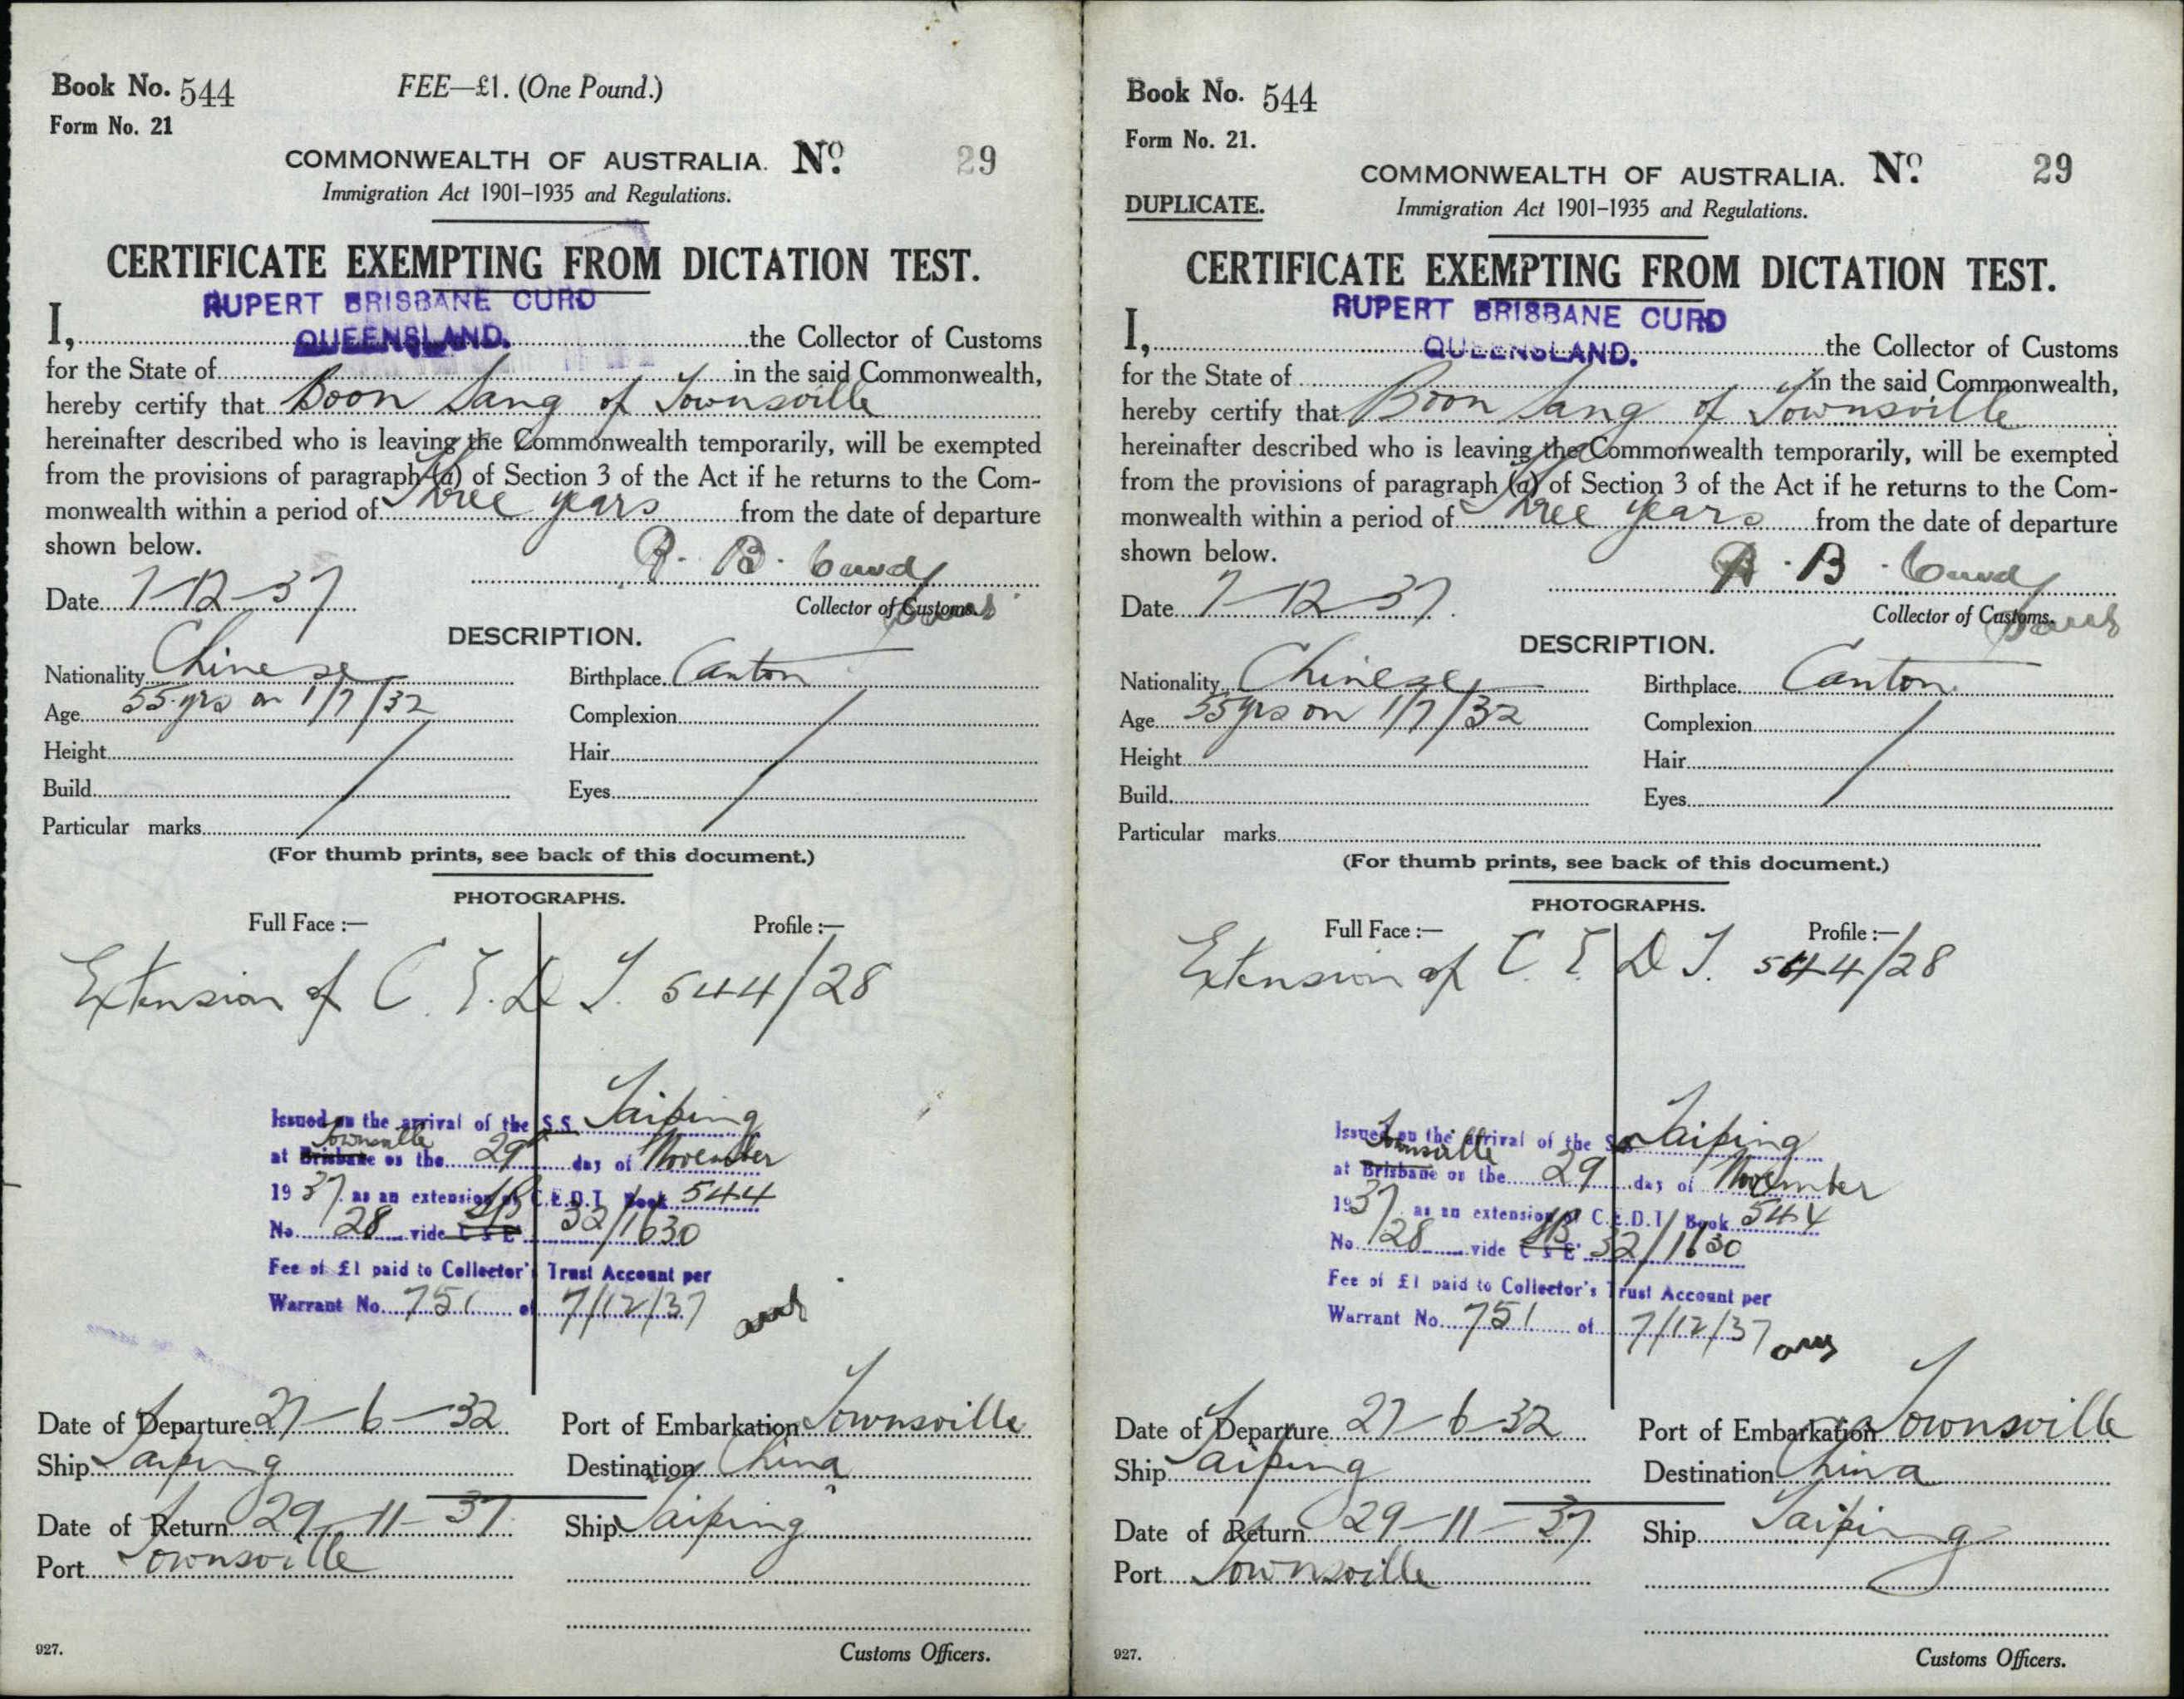 Book No. 544 FEE—£1. (One Pound.)
Form No. 21
COMMONWEALTH OF AUSTRALIA. No. 29
Immigration Act 1901–1935 and Regulations.
CERTIFICATE EXEMPTING FROM DICTATION TEST.
RUPERT BRISBANE CURD
I, the Collector of Customs
QUEENSLAND.
for the State of in the said Commonwealth,
hereby certify that Boon Sang of Townsville
hereinafter described who is leaving the Commonwealth temporarily, will be exempted
from the provisions of paragraph (a) of Section 3 of the Act if he returns to the Com-
monwealth within a period of Three years from the date of departure
shown below.
R. B. Curd
Date 7-12-37
Collector of Customs.
DESCRIPTION.
Nationality Chinese Birthplace Canton
Age 55 yrs on 1/7/32 Complexion
Height Hair
Build Eyes
Particular marks
(For thumb prints, see back of this document.)
PHOTOGRAPHS.
Full Face :— Profile :—
Extension of C.E.D.T. 544/28
Issued on the arrival of the S.S. Taiping
Townsville
at Brisbane on the 29 day of November
1937 as an extension of C.E.D.T. Book 544
No. 28 vide C & E 32/1630
Fee of £1 paid to Collector's Trust Account per
Warrant No. 751 of 7/12/37
Date of Departure 27-6-32 Port of Embarkation Townsville
Ship Taiping Destination China
Date of Return 29-11-37 Ship Taiping
Port Townsville
927. Customs Officers.
Book No. 544
Form No. 21.
COMMONWEALTH OF AUSTRALIA. No. 29
DUPLICATE. Immigration Act 1901–1935 and Regulations.
CERTIFICATE EXEMPTING FROM DICTATION TEST.
RUPERT BRISBANE CURD
I, the Collector of Customs
QUEENSLAND.
for the State of in the said Commonwealth,
hereby certify that Boon Sang of Townsville
hereinafter described who is leaving the Commonwealth temporarily, will be exempted
from the provisions of paragraph (a) of Section 3 of the Act if he returns to the Com-
monwealth within a period of Three years from the date of departure
shown below.
R. B. Curd
Date 7-12-37
Collector of Customs.
DESCRIPTION.
Nationality Chinese Birthplace Canton
Age 55 yrs on 1/7/32 Complexion
Height Hair
Build Eyes
Particular marks
(For thumb prints, see back of this document.)
PHOTOGRAPHS.
Full Face :— Profile :—
Extension of C.E.D.T. 544/28
Issued on the arrival of the S.S. Taiping
Townsville
at Brisbane on the 29 day of November
1937 as an extension of C.E.D.T. Book 544
No. 28 vide C & E 32/1630
Fee of £1 paid to Collector's Trust Account per
Warrant No. 751 of 7/12/37
Date of Departure 27-6-32 Port of Embarkation Townsville
Ship Taiping Destination China
Date of Return 29-11-37 Ship Taiping
Port Townsville
927. Customs Officers.